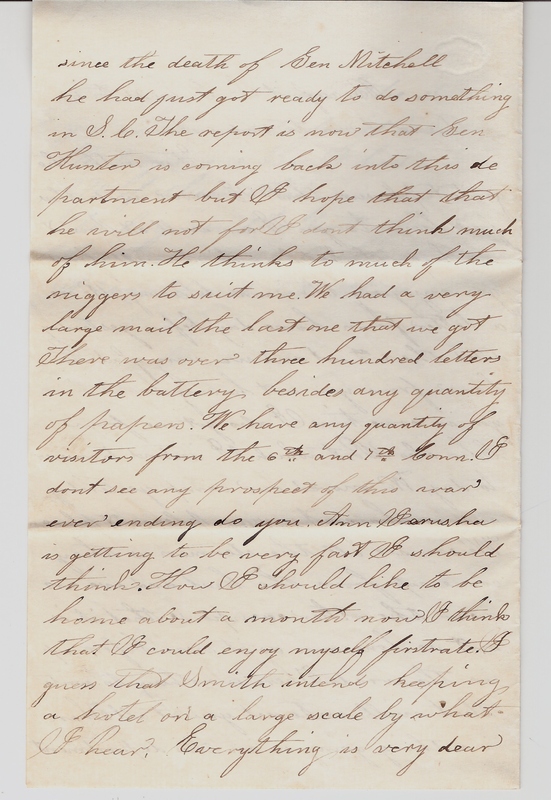 since the death of Gen Mitchell
he had just got ready to do something
in S.C. The report is now that Gen
Hunter is coming back into this de
partment but I hope that that
he will not for I dont think much
of him. He thinks to much of the
niggers to suit me. We had a very
large mail the last one that we got
There was over three hundred letters
in the battery besides any quantity
of papers. We have any quantity of
visitors from the 6th and 7th Conn. I
dont see any prospect of this war
ever ending do you. Ann Jarusha
is getting to be very fast I should
think. How I should like to be
home about a month now I think
that I could enjoy myself firstrate. I
guess that Smith intends keeping
a hotel on a large scale by what
I hear. Everything is very dear